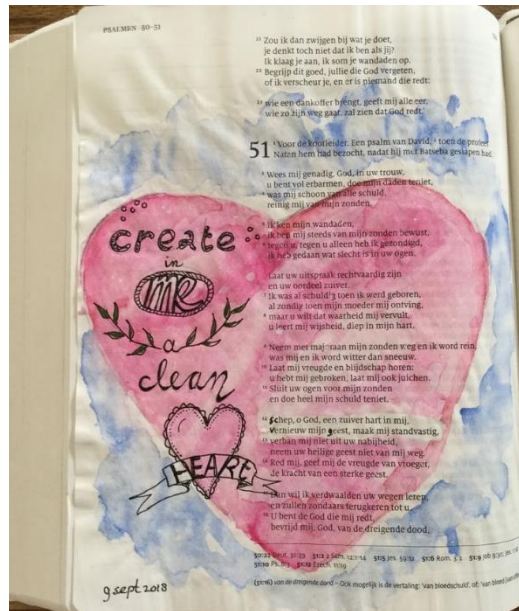 PSALMEN 50–51
21 Zou ik dan zwijgen bij wat je doet,
je denkt toch niet dat ik ben als jij?
Ik klaag je aan, ik som je wandaden op.
22 Begrijp dit goed, jullie die God vergeten,
of ik verscheur je, en er is niemand die redt:
23 wie een dankoffer brengt, geeft mij alle eer,
wie zo zijn weg gaat, zal zien dat God redt.’
51 1 Voor de koorleider. Een psalm van David, 2 toen de profeet
Natan hem had bezocht, nadat hij met Batseba geslapen had.
3 Wees mij genadig, God, in uw trouw,
u bent vol erbarmen, doe mijn daden teniet,
4 was mij schoon van alle schuld,
reinig mij van mijn zonden.
5 Ik ken mijn wandaden,
ik ben mij steeds van mijn zonden bewust,
6 tegen u, tegen u alleen heb ik gezondigd,
ik heb gedaan wat slecht is in uw ogen.
Laat uw uitspraak rechtvaardig zijn
en uw oordeel zuiver.
7 Ik was al schuldig toen ik werd geboren,
al zondig toen mijn moeder mij ontving,
8 maar u wilt dat waarheid mij vervult,
u leert mij wijsheid, diep in mijn hart.
9 Neem met majoraan mijn zonden weg en ik word rein,
was mij en ik word witter dan sneeuw.
10 Laat mij vreugde en blijdschap horen:
u hebt mij gebroken, laat mij ook juichen.
11 Sluit uw ogen voor mijn zonden
en doe heel mijn schuld teniet.
12 Schep, o God, een zuiver hart in mij,
vernieuw mijn geest, maak mij standvastig,
13 verban mij niet uit uw nabijheid,
neem uw heilige geest niet van mij weg.
14 Red mij, geef mij de vreugde van vroeger,
de kracht van een sterke geest.
15 Dan wil ik verdwaalden uw wegen leren,
en zullen zondaars terugkeren tot u.
16 U bent de God die mij redt,
bevrijd mij, God, van de dreigende dood,
create
in
me
a
clean
HEART
50:22 Deut. 32:39 51:2 2 Sam. 12:1-14 51:5 Jes. 59:12 51:6 Rom. 3:4 51:9
51:12 Ezech. 11:19
(51:16) van de dreigende dood – Ook mogelijk is de vertaling: ‘van bloedschuld’, of: ‘van
9 sept 2018